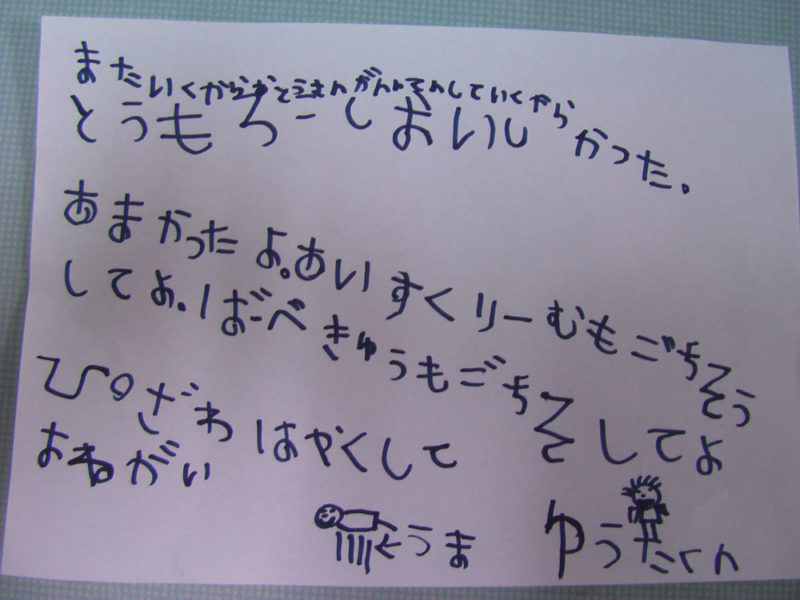 またいくから していくから
とうもろーしおいしかった。
あまかったよ。あいすくりーむもごちそう
してよ。ばーべきゅうもごちそしてよ
ぴざわはやくして
おねがい
←うま
ゆうたくん